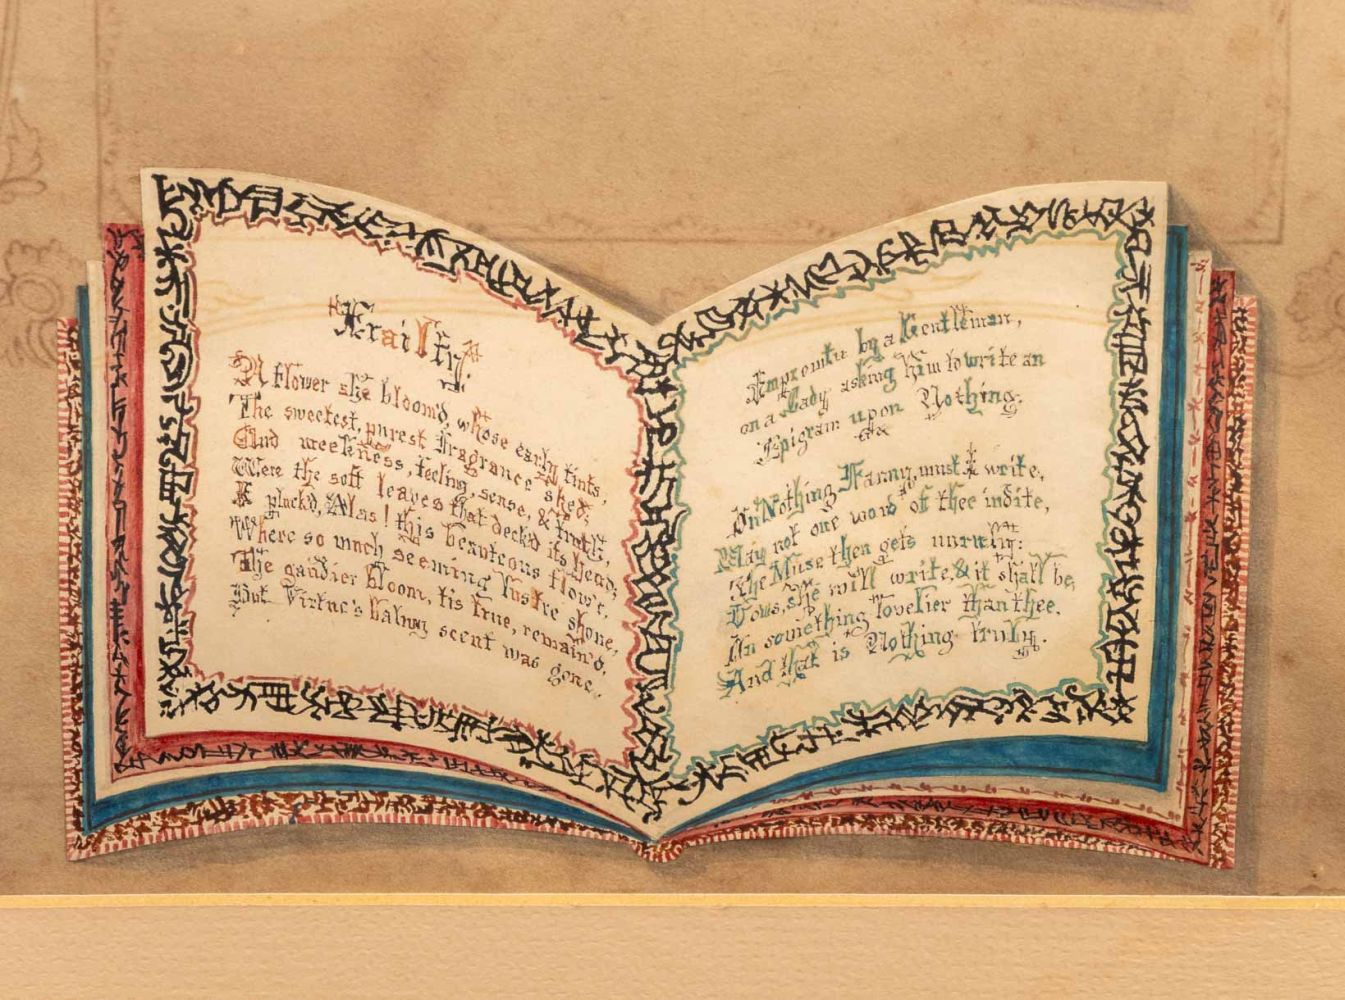 Frailty.
A flower she bloom'd, whose early tints,
The sweetest, purest fragrance shed;
And meekness, feeling, sense, & truth,
Were the soft leaves that deck'd its head;
I pluck'd, Alas! this beauteous flow'r,
Where so much seeming lustre shone,
The gaudier bloom, tis true, remain'd,
But Virtue's balmy scent was gone.
Impromtu by a Gentleman,
on a Lady asking him to write an
Epigram upon Nothing.
On Nothing Fanny, must I write,
May not one word of thee indite,
The Muse then gets unruly:
Vows, she will write, & it shall be,
On something lovelier than thee.
And that is Nothing truly.